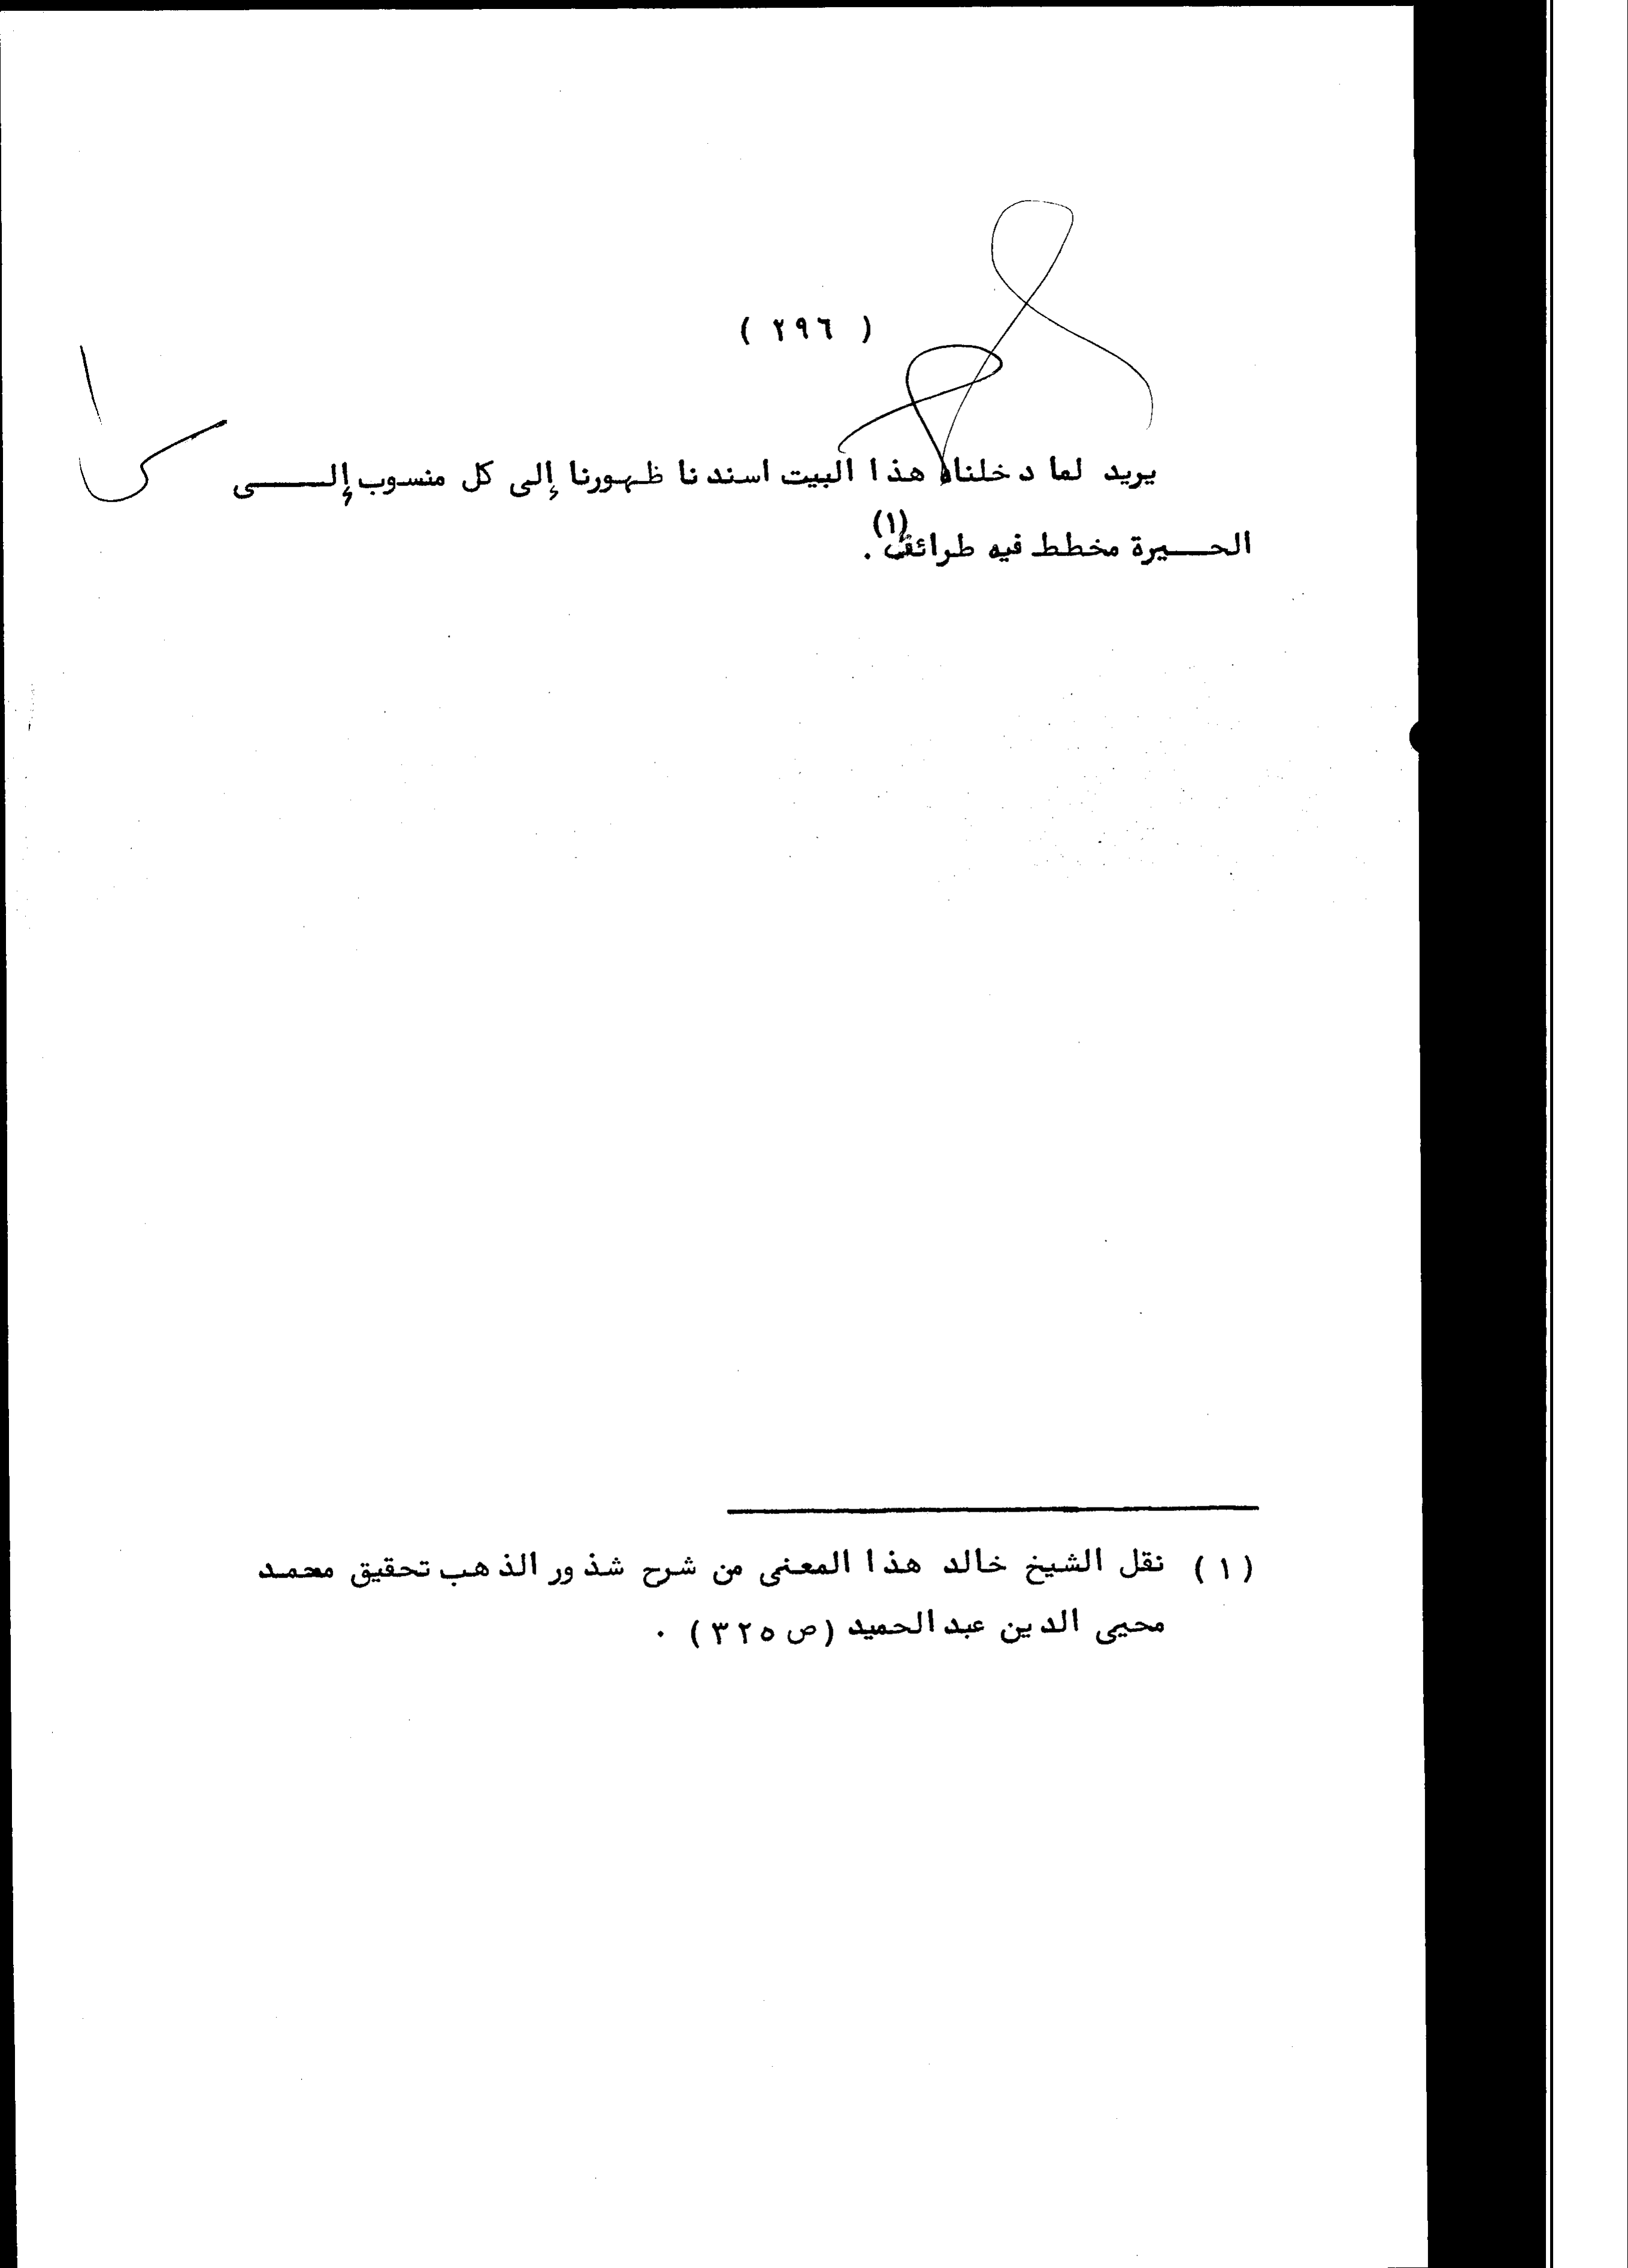 ( ٢٩٦ )
يريد لما دخلناه هذا البيت اسندنا ظهورنا إلى كل منسوب إلى
الحيرة مخطط فيه طرائق (١) .
(١) نقل الشيخ خالد هذا المعنى من شرح شذور الذهب تحقيق محمد
محيى الدين عبدالحميد (ص ٣٢٥) .